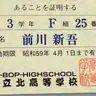 あることを証明する
3 学年 F 組 25 番
前川 新吾
効期限 昭和59年 4月1日まで有
-BOP-HIGHSCHOOL
立北高等学校